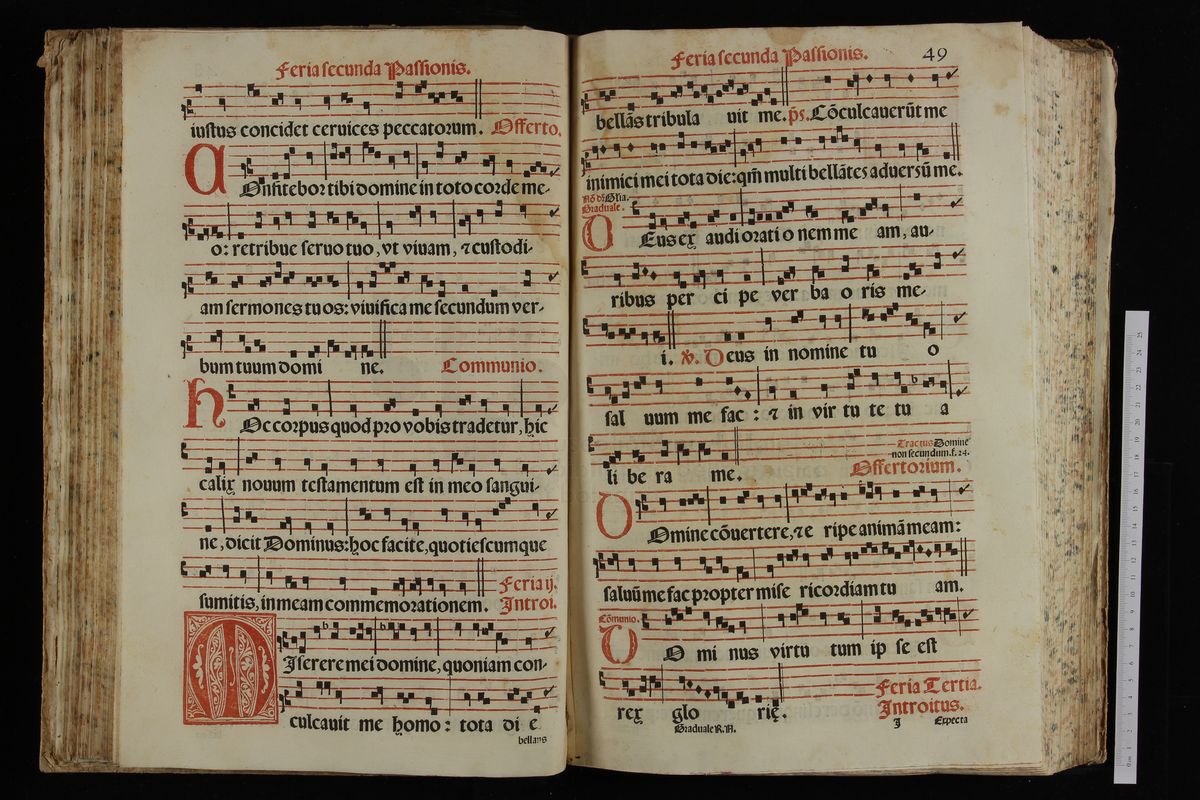 Feria secunda Passionis.
iustus concidet ceruices peccatorum. Offerto.
COnfitebor tibi domine in toto corde me-
o: retribue seruo tuo, vt viuam, ⁊ custodi-
am sermones tuos: viuifica me secundum ver-
bum tuum domi ne. Communio.
HOc corpus quod pro vobis tradetur, hic
calix nouum testamentum est in meo sangui-
ne, dicit Dominus: hoc facite, quotiescumque
sumitis, in meam commemorationem. Feria ij.
Introi.
MIserere mei domine, quoniam con-
culcauit me homo: tota di e
bellans
Feria secunda Passionis. 49
bellãs tribula uit me. p̃s. Cõculcauerũt me
inimici mei tota die: qm̃ multi bellãtes aduersũ me.
Nõ dr̃ Glia.
Graduale.
DEus ex audi orati o nem me am, au-
ribus per ci pe ver ba o ris me-
i. ℣. Deus in nomine tu o
sal uum me fac: ⁊ in vir tu te tu a
li be ra me.
Tractus Domine
non secundum. f. 24.
Offertorium.
DOmine cõuertere, ⁊ e ripe animã meam:
saluũ me fac propter mise ricordiam tu am.
Cõmunio.
DO mi nus virtu tum ip se est
rex glo rię.
Feria Tertia.
Introitus.
Graduale R. A.
Expecta